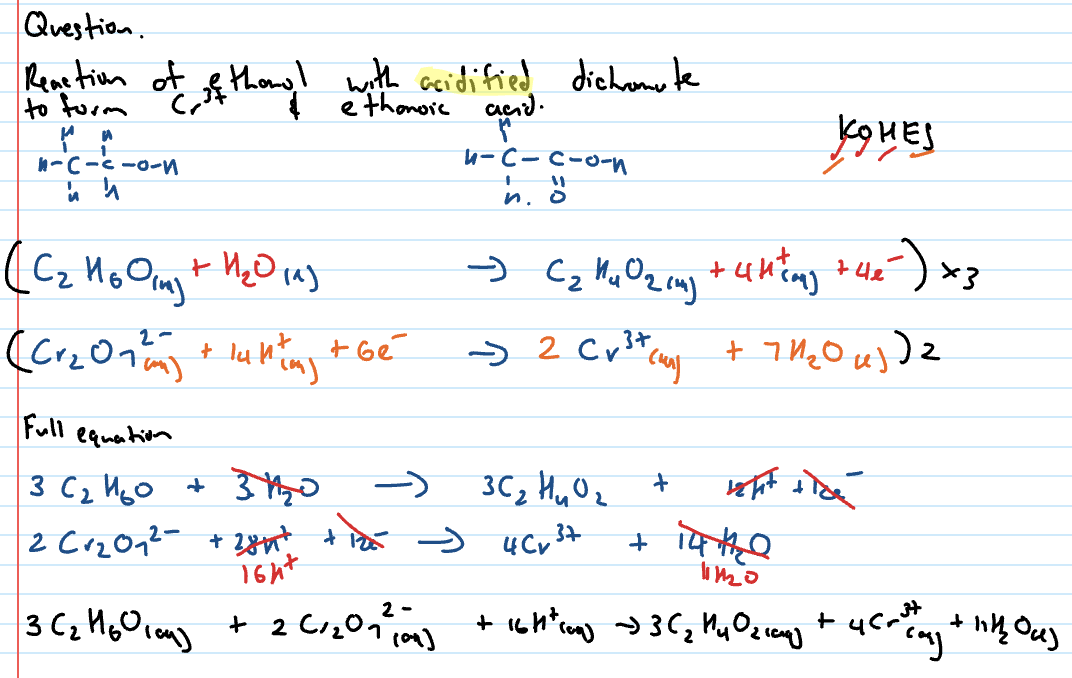 Question.
Reaction of ethanol with acidified dichromate
to form Cr³⁺ & ethanoic acid.
KOHES
H H
H-C-C-O-H
H H
H
H-C-C-O-H
H. O
(C₂H₆O(aq) + H₂O(l) → C₂H₄O₂(aq) + 4H⁺(aq) + 4e⁻) ×3
(Cr₂O₇²⁻(aq) + 14H⁺(aq) + 6e⁻ → 2Cr³⁺(aq) + 7H₂O(l)) 2
Full equation
3C₂H₆O + 3H₂O → 3C₂H₄O₂ + 12H⁺ + 12e⁻
2Cr₂O₇²⁻ + 28H⁺ + 12e⁻ → 4Cr³⁺ + 14H₂O
16H⁺ 11H₂O
3C₂H₆O(aq) + 2Cr₂O₇²⁻(aq) + 16H⁺(aq) → 3C₂H₄O₂(aq) + 4Cr³⁺(aq) + 11H₂O(l)